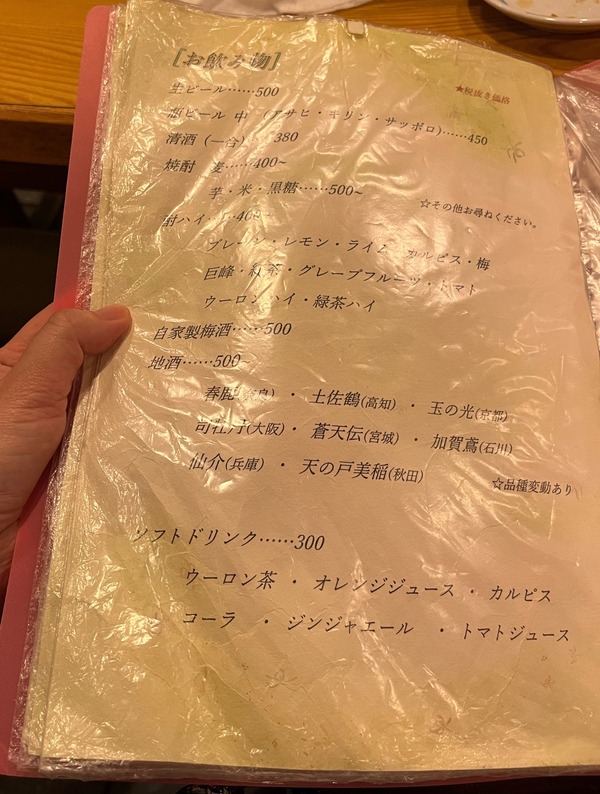 [お飲み物]
★税抜き価格
生ビール……500
瓶ビール 中 (アサヒ・キリン・サッポロ)……450
清酒(一合) 380
焼酎 麦……400~
芋・米・黒糖……500~
☆その他お尋ねください。
酎ハイ……400~
プレーン・レモン・ライム カルピス・梅
巨峰・紅茶・グレープフルーツ・トマト
ウーロンハイ・緑茶ハイ
自家製梅酒……500
地酒……500~
春鹿(奈良) ・ 土佐鶴(高知) ・ 玉の光(京都)
司牡丹(大阪) ・ 蒼天伝(宮城) ・ 加賀鳶(石川)
仙介(兵庫) ・ 天の戸美稲(秋田)
☆品種変動あり
ソフトドリンク……300
ウーロン茶 ・ オレンジジュース ・ カルピス
コーラ ・ ジンジャエール ・ トマトジュース